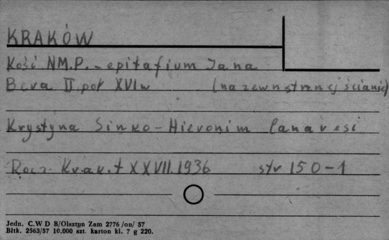 KRAKÓW
Kość NM.P. - epitafium Jana
Bera II poł XVIw (na zewnętrznej ścianie)
Krystyna Sinko-Hieronim Canavesi
Rocz. Krak. t XXVII. 1936 str 150-1
Jedn. C.W D B/Olsztyn Zam 2776/on/ 57
Bltk. 2563/57 10.000 szt. karton kl. 7 g 220.